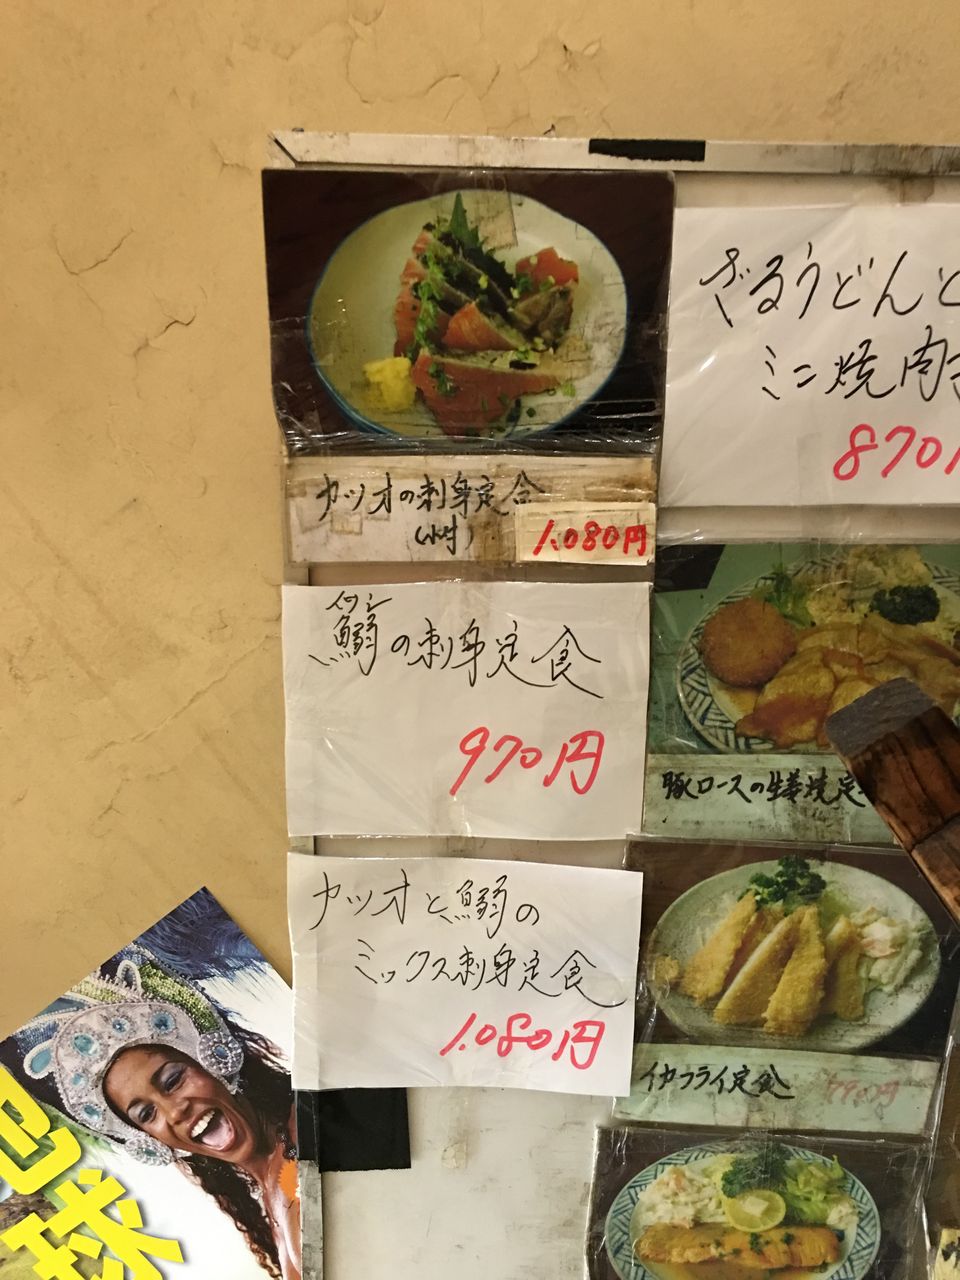 カツオの刺身定食
1.080円
イワシ
鰯の刺身定食
970円
カツオと鰯の
ミックス刺身定食
1.080円
ざるうどんと
ミニ焼肉
870
豚ロースの生姜焼定
イカフライ定食
790円
球